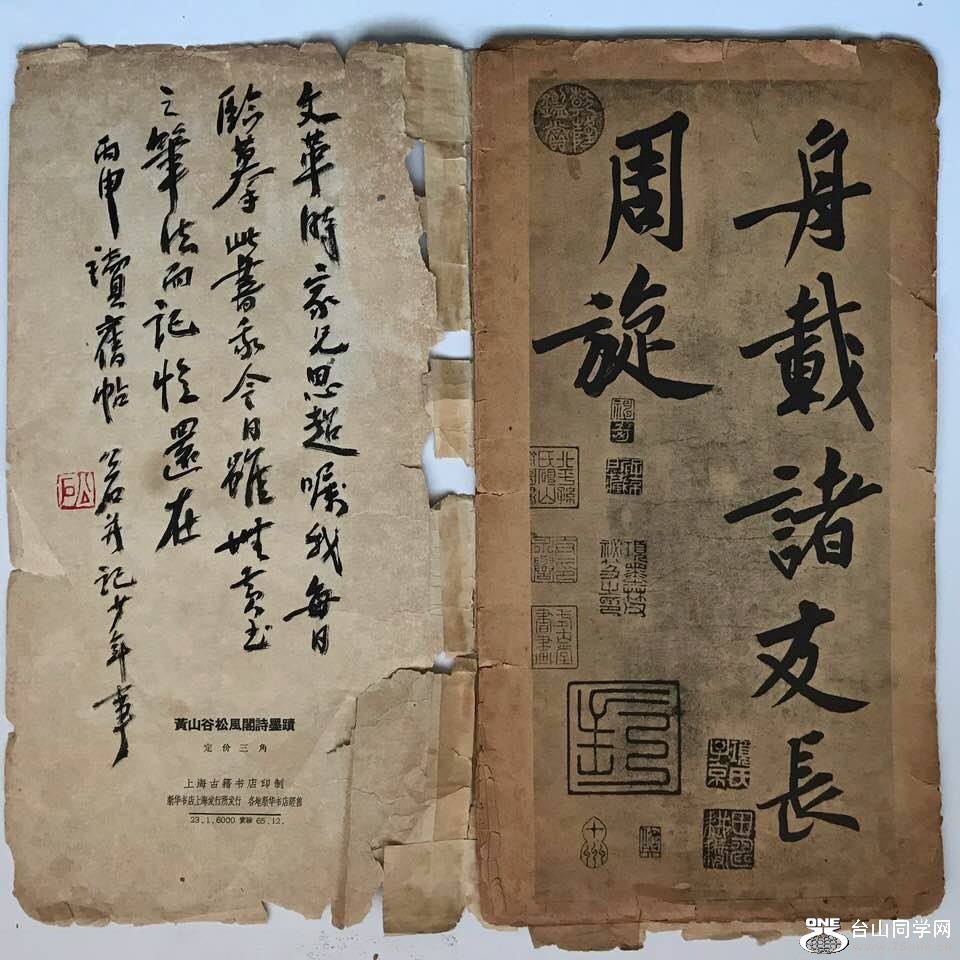 身載諸友長
周旋
乾隆鑑賞
項氏子京
文革時家兄思超嘱我每日
臨摹此書我今日雖無黄书
之筆法而記忆還在
丙申讀舊帖 公石并記少年事
公石
黃山谷松風閣詩墨蹟
定价三角
上海古籍书店印制
新华书店上海发行所发行 各地新华书店经售
23.1.6000 實驗 65.12.
ONE 台山同学网